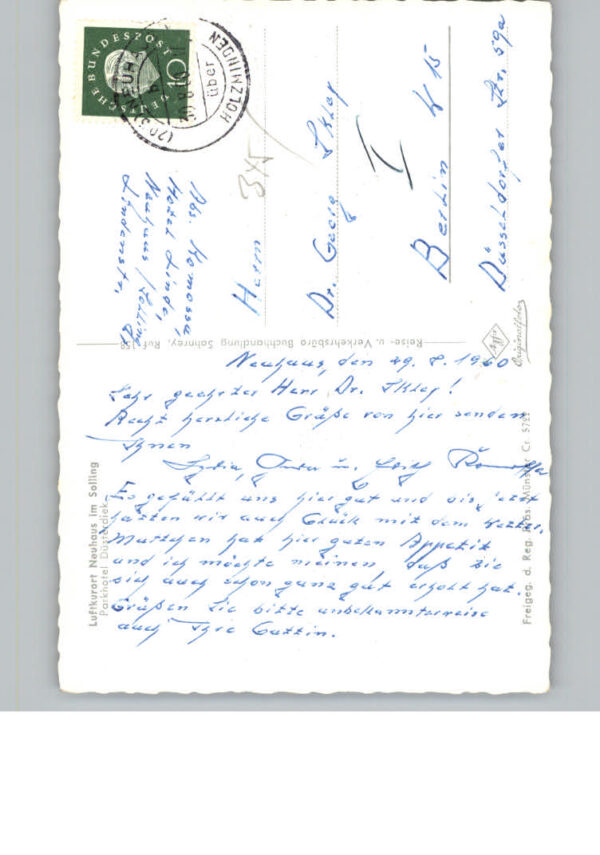 DEUTSCHE BUNDESPOST
10
(20b) NEUHAUS
über
HOLZMINDEN
Abs. Komossa,
Hotel Linde,
Neuhaus / Solling
Lindenstr.
345
Herrn
Dr. Georg
I
Berlin W 15
Düsseldorfer Str. 59a
Reise- u. Verkehrsbüro Buchhandlung Sahnrey, Ruf 158
Agfa
Originalfoto
Neuhaus, den 29. 8. 1960
Sehr geehrter Herr Dr.
Recht herzliche Grüße von hier senden
Ihnen
Lydia, u.
Es gefällt uns hier gut und bis jetzt
hatten wir auch Glück mit dem Wetter.
Muttchen hat hier guten Appetit
und ich möchte meinen, daß sie
sich auch schon ganz gut erholt hat.
Grüßen Sie bitte unbekannterweise
auch Ihre Gattin.
Luftkurort Neuhaus im Solling
Parkhotel Düsterdiek
Freigeg. d. Reg. Präs. Münster Cr.